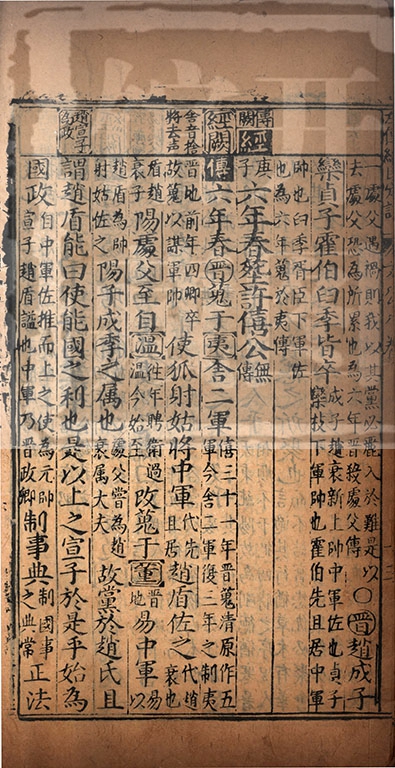 處父遇禍則我以其黨必罹入於難是以
去處父恐為所累也為六年晉殺處父傳
〇晉趙成子
欒貞子霍伯臼季皆卒
成子趙衰新上帥中軍佐也貞子
欒枝下軍帥也霍伯先且居中軍
帥也臼季胥臣下軍佐
也為六年蒐於夷傳
傳闕
經
庚子
六年春葬許僖公
無傳
經闕
傳
六年春晉蒐于夷舍二軍
僖三十一年晉蒐清原作五
軍今舍二軍復三年之制夷
舍音捨
將去声
晉地前年四卿卒
故蒐以謀軍帥
使狐射姑將中軍
代先
且居
趙盾佐之
代趙
衰也
盾趙
衰子
陽處父至自溫
往年聘衛過
溫今始至
改蒐于董
晉地
易中軍
易以
趙盾為帥
射姑佐之
陽子成季之属也
處父嘗為趙
衰属大夫
故黨於趙氏且
趙宣子
為政
謂趙盾能曰使能國之利也是以上之宣子於是乎始為
國政
自中軍佐推而上之使為元帥
宣子趙盾謚也中軍乃晉政卿
制事典
制國事
之典常
正法